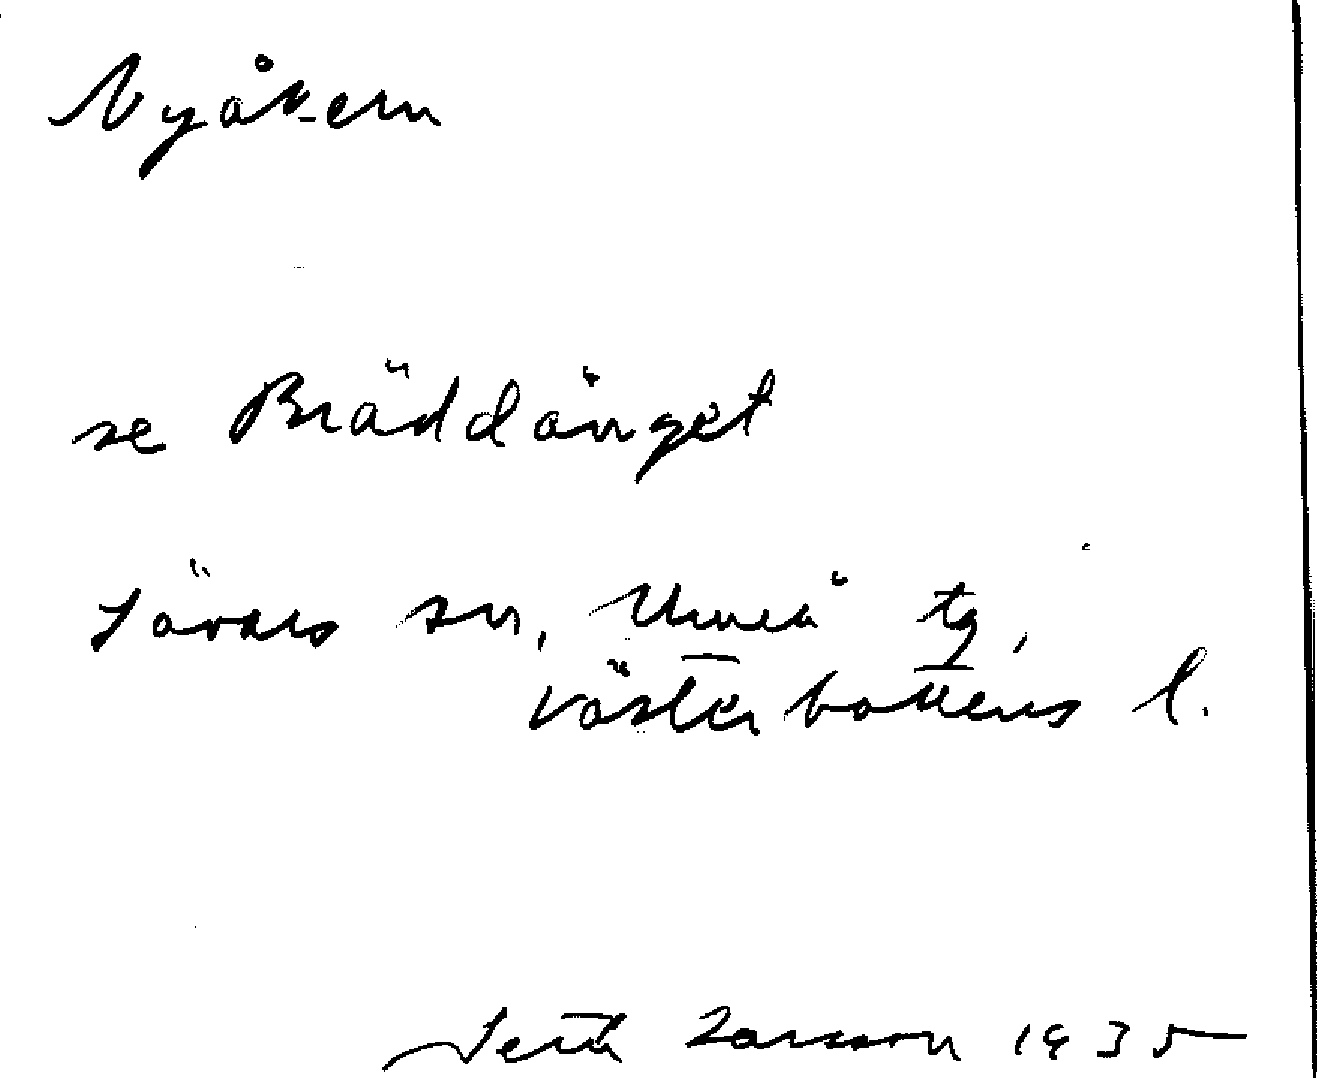 Nyåkern
se Bräddänget
Sävars sn, Umeå tg,
Västerbottens l.
Seth Larsson 1935